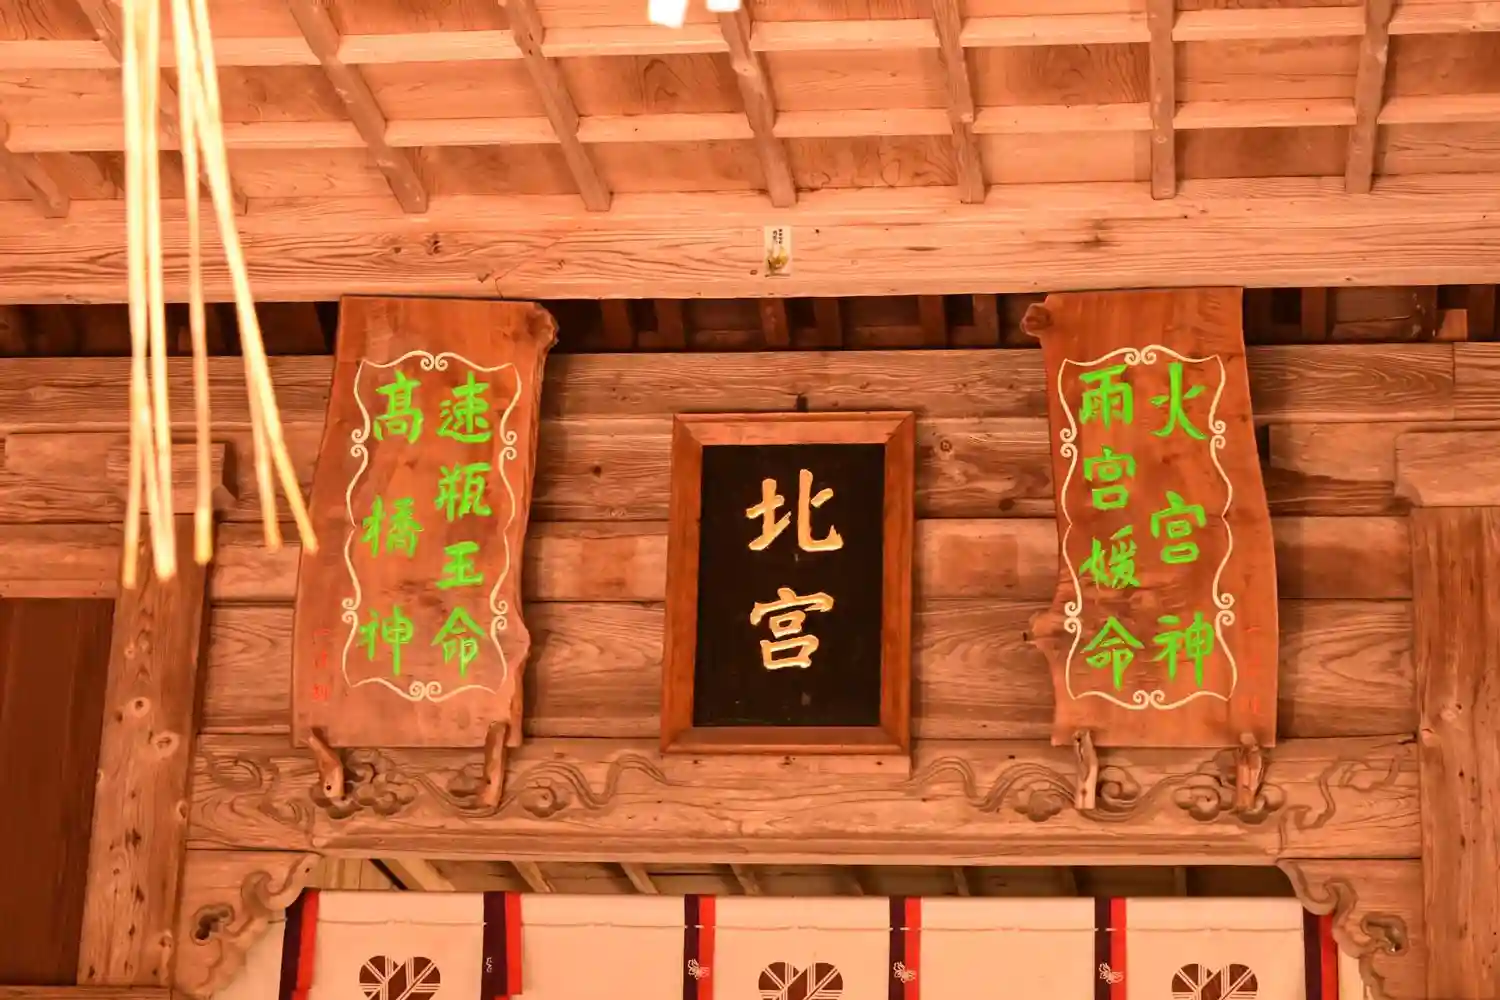 火宮神
雨宮媛命
北宮
速瓶玉命
高橋神